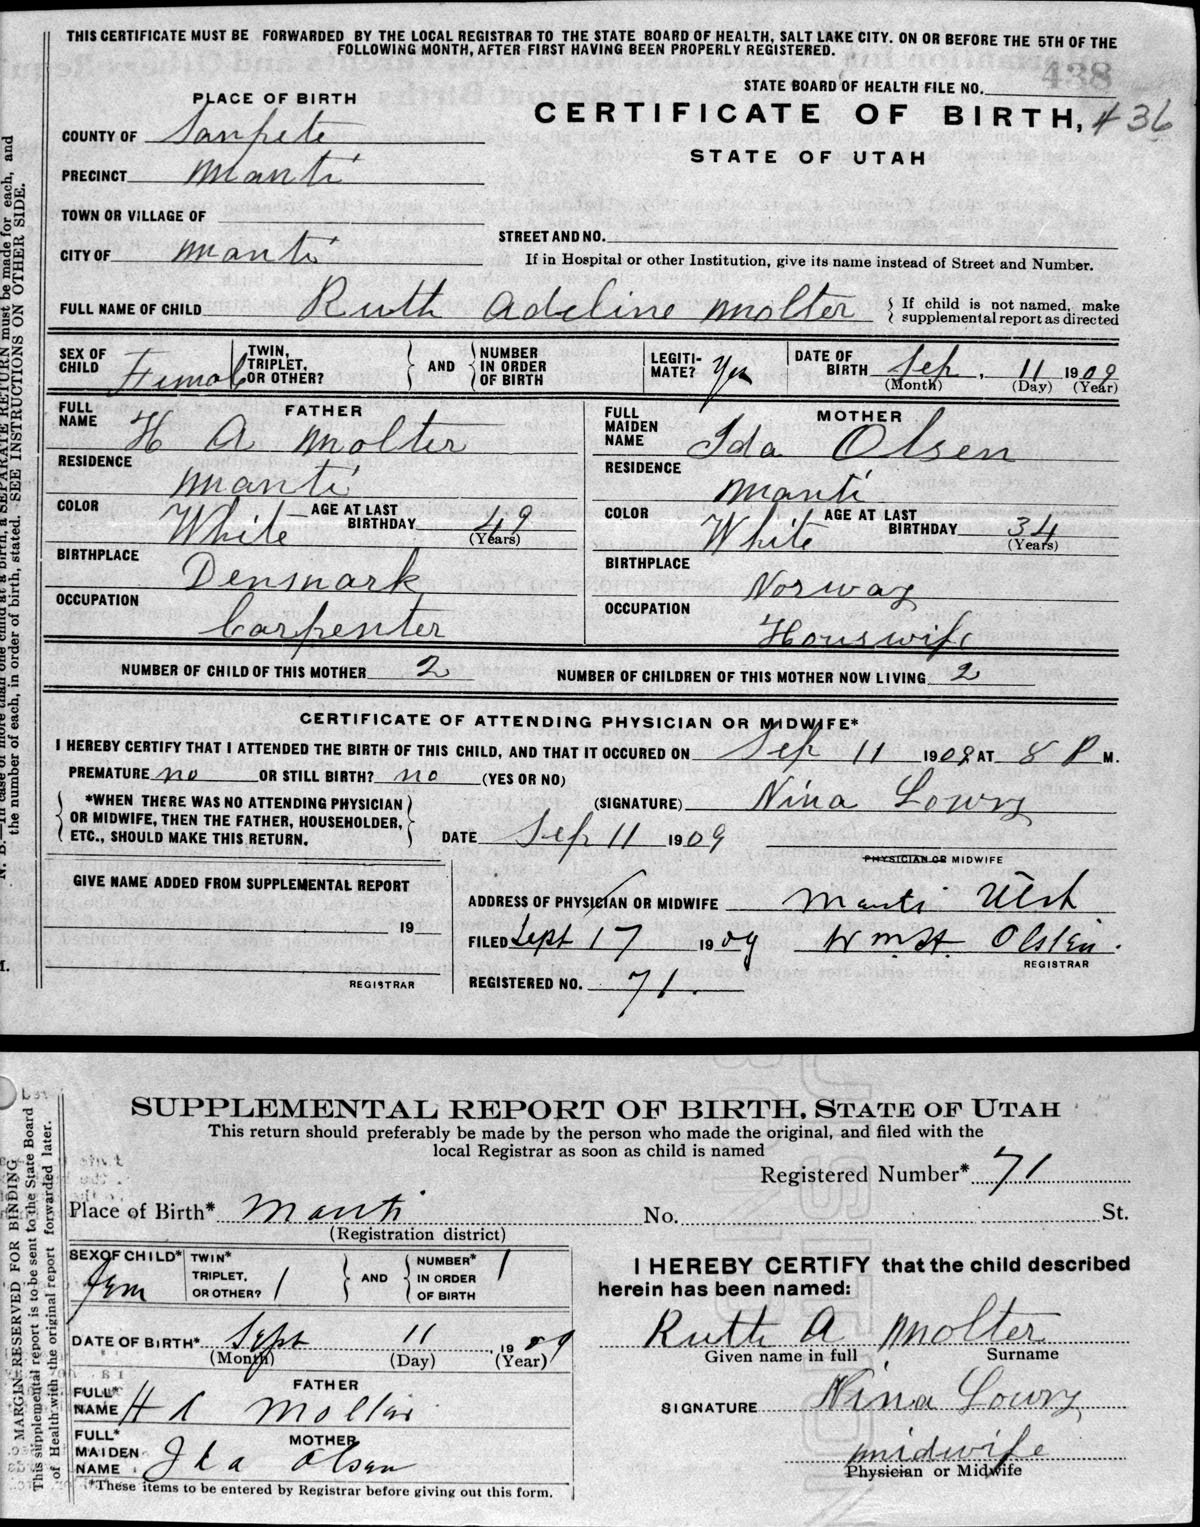 THIS CERTIFICATE MUST BE FORWARDED BY THE LOCAL REGISTRAR TO THE STATE BOARD OF HEALTH, SALT LAKE CITY. ON OR BEFORE THE 5TH OF THE
FOLLOWING MONTH, AFTER FIRST HAVING BEEN PROPERLY REGISTERED.
438
STATE BOARD OF HEALTH FILE NO.
PLACE OF BIRTH
CERTIFICATE OF BIRTH, #36
STATE OF UTAH
COUNTY OF Sanpete
PRECINCT Manti
TOWN OR VILLAGE OF
STREET AND NO.
CITY OF Manti
If in Hospital or other Institution, give its name instead of Street and Number.
FULL NAME OF CHILD Ruth Adeline Molter
If child is not named, make
supplemental report as directed
SEX OF CHILD Femal
TWIN, TRIPLET, OR OTHER?
AND
NUMBER IN ORDER OF BIRTH
LEGITIMATE? Yes
DATE OF BIRTH Sep. 11 1909
(Month) (Day) (Year)
FATHER
FULL NAME H A Molter
RESIDENCE Manti
COLOR White AGE AT LAST BIRTHDAY 49
(Years)
BIRTHPLACE Denmark
OCCUPATION Carpenter
MOTHER
FULL MAIDEN NAME Ida Olsen
RESIDENCE Manti
COLOR White AGE AT LAST BIRTHDAY 34
(Years)
BIRTHPLACE Norway
OCCUPATION Houswife
NUMBER OF CHILD OF THIS MOTHER 2
NUMBER OF CHILDREN OF THIS MOTHER NOW LIVING 2
CERTIFICATE OF ATTENDING PHYSICIAN OR MIDWIFE*
I HEREBY CERTIFY THAT I ATTENDED THE BIRTH OF THIS CHILD, AND THAT IT OCCURED ON Sep 11 1909 AT 8 P M.
PREMATURE no OR STILL BIRTH? no (YES OR NO)
*WHEN THERE WAS NO ATTENDING PHYSICIAN
OR MIDWIFE, THEN THE FATHER, HOUSEHOLDER,
ETC., SHOULD MAKE THIS RETURN.
(SIGNATURE) Nina Lowry
DATE Sep 11 1909
PHYSICIAN OR MIDWIFE
GIVE NAME ADDED FROM SUPPLEMENTAL REPORT
19
REGISTRAR
ADDRESS OF PHYSICIAN OR MIDWIFE Manti Utah
FILED Sept 17 1909 Wm. H Olsten.
REGISTRAR
REGISTERED NO. 71.
N. B.—In case of more than one child at a birth, a SEPARATE RETURN must be made for each, and
the number of each, in order of birth, stated. SEE INSTRUCTIONS ON OTHER SIDE.
SUPPLEMENTAL REPORT OF BIRTH. STATE OF UTAH
This return should preferably be made by the person who made the original, and filed with the
local Registrar as soon as child is named
Registered Number* 71
Place of Birth* Manti No. St.
(Registration district)
SEX OF CHILD* Fem
TWIN* TRIPLET, OR OTHER? 1
AND
NUMBER* IN ORDER OF BIRTH 1
DATE OF BIRTH* Sept 11, 1909
(Month) (Day) (Year)
FATHER
FULL* NAME H A Molter
MOTHER
FULL* MAIDEN NAME Ida Olsen
*These items to be entered by Registrar before giving out this form.
I HEREBY CERTIFY that the child described
herein has been named:
Ruth A Molter
Given name in full Surname
SIGNATURE Nina Lowry
midwife
Physician or Midwife
MARGIN RESERVED FOR BINDING
This supplemental report is to be sent to the State Board
of Health with the original report forwarded later.